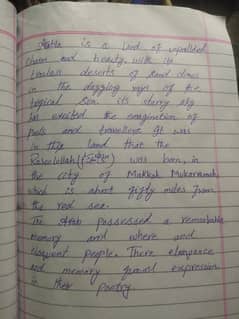 is a land of unparalled
charm and beauty, with its
trackless deserts of sand dunes
in the dazzling rays of the
tropical sun. its starry sky
has excited the imagination of
poets and travellers It was
in this land that the
Rasoolullah ( ) was born, in
the city of Makkah Mukarramah,
which is about fifty miles from
the red sea.
The Arab possessed a remarkable
memory and where and
eloquent people. There eloquence
and memory found expression
in their poetry